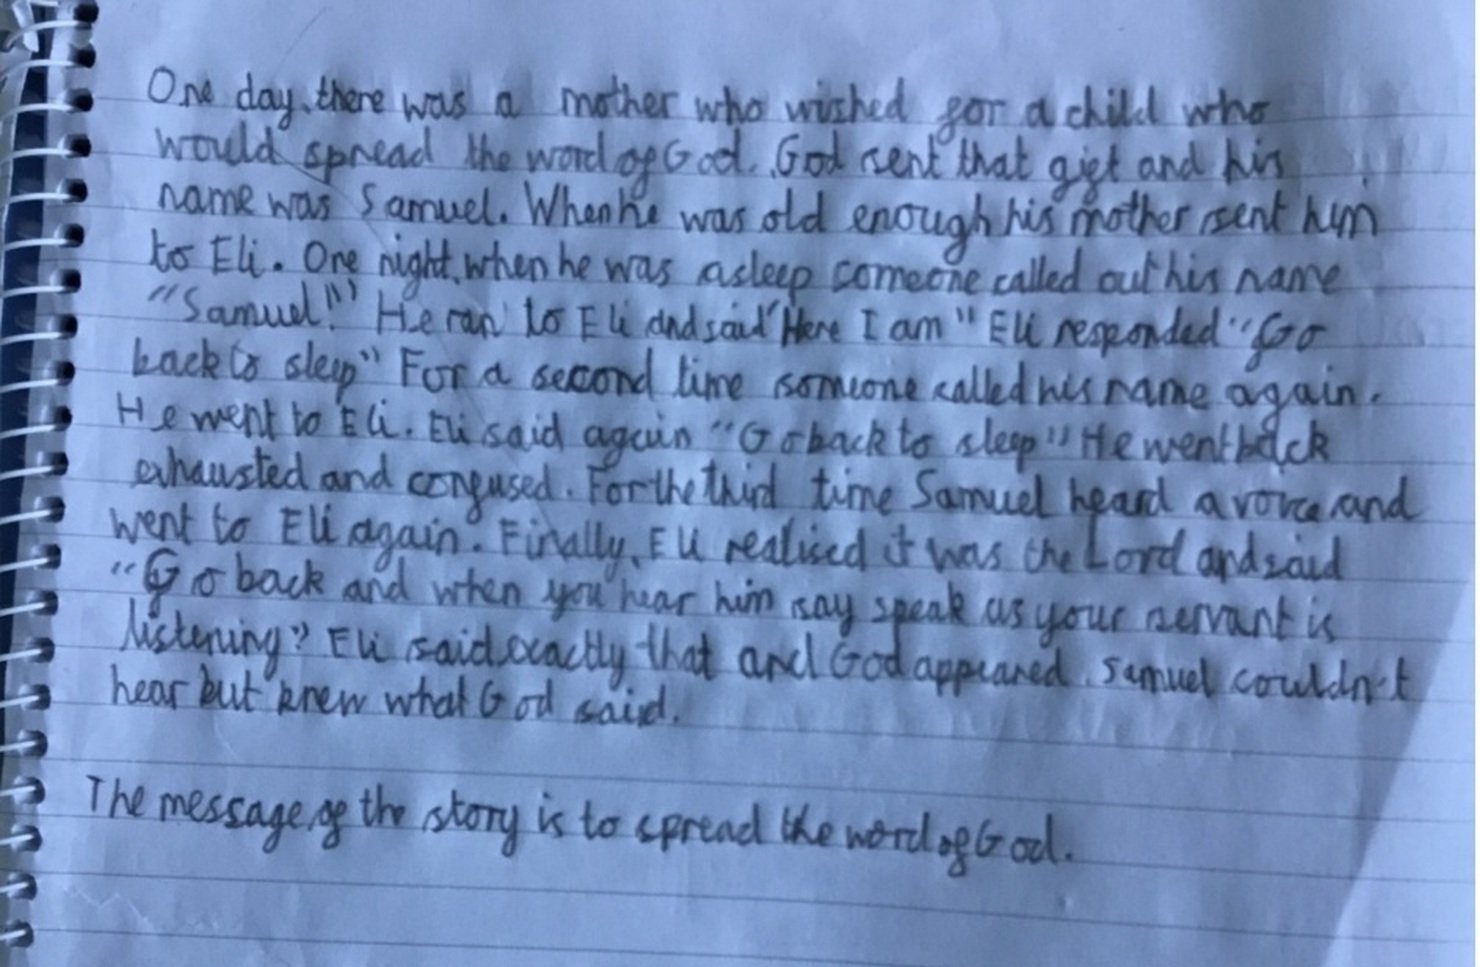 One day, there was a mother who wished for a child who
would spread the word of God. God sent that gift and his
name was Samuel. When he was old enough his mother sent him
to Eli. One night, when he was asleep someone called out his name
"Samuel!" He ran to Eli and said "Here I am" Eli responded "Go
back to sleep" For a second time someone called his name again.
He went to Eli. Eli said again "Go back to sleep" He went back
exhausted and confused. For the third time Samuel heard a voice and
went to Eli again. Finally, Eli realised it was the Lord and said
"Go back and when you hear him say speak as your servant is
listening" Eli said exactly that and God appeared. Samuel couldn't
hear but knew what God said.
The message of the story is to spread the word of God.